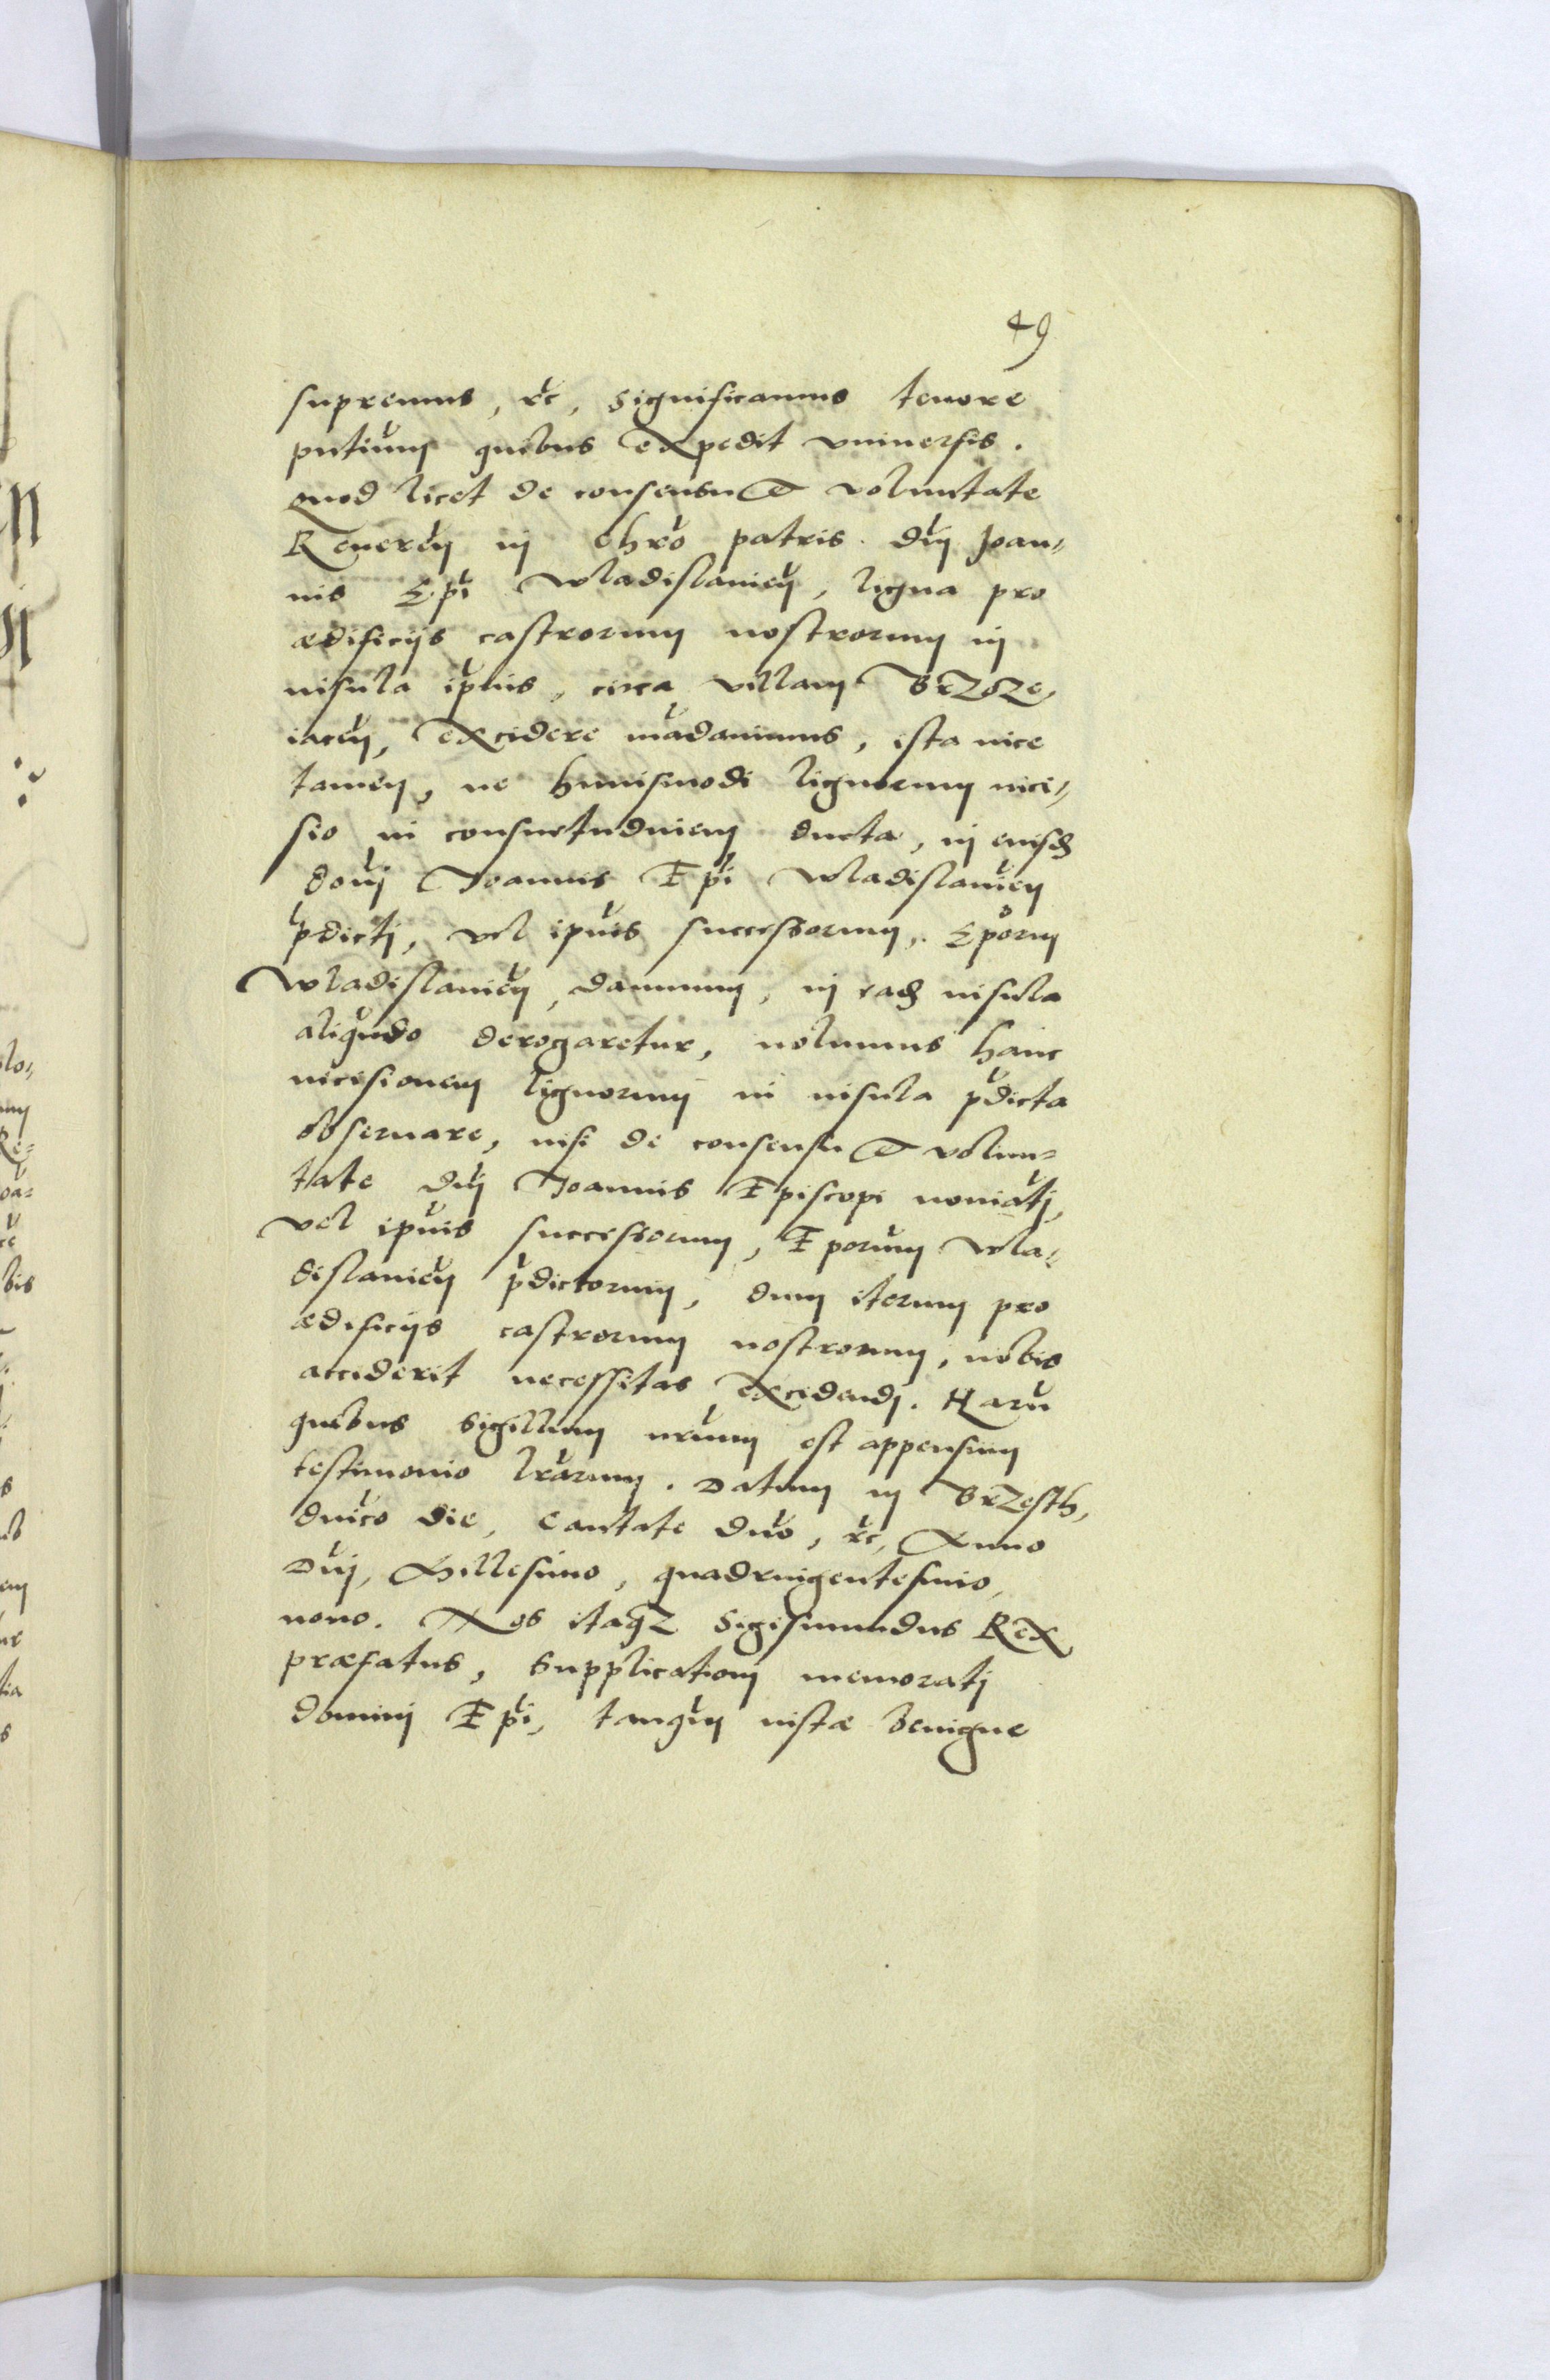 49
supremus, &c, Significamus tenore
pntium quibus expedit vniuersis.
quod licet de consensu & voluntate
Reueren in Chro patris dni Joan„
nis Epi Wladislauien, ligna pro
ædificijs castrorum nostrorum in
insula ipsius, circa villam Brzoze,
iacen, excidere madauimus, ista vice
tamen, ne huiusmodi lignorum inci„
sio in consuetudinem ducta, in eiusd
doni Joannis Epi Wladislauien
pdicti, vel ipius successorum, Eporum
Wladislauien, damnum, in ead insula
aliqudo derogaretur, nolumus hanc
incisionem lignorum in insula pdicta
obseruare, nisi de consensu & volun„
tate dni Joannis Episcopi noniati,
vel ipius successorum, Eporum Wla„
dislauien pdictorum, dum iterum pro
ædificijs castrorum nostrorum, nobis
acciderit necessitas excidendi. Haru
quibus Sigillum nrum est appensum
testimonio lrarum. Datum in Brzesth,
dnico die, Cantate dno, &c, Anno
Dni, Millesimo, quadringentesimo,
nono. Nos itaqz Sigismundus Rex
præfatus, Supplicationi memorati
domini Epi, tanqum iustæ benigne